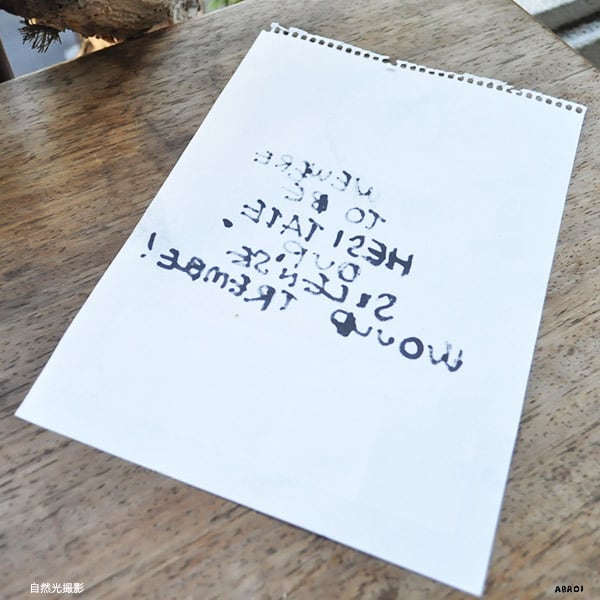 WEWERE
TO BE
HESITATE.
OUR
SILENSE
WOULD TREMBE!
自然光撮影
ABR01